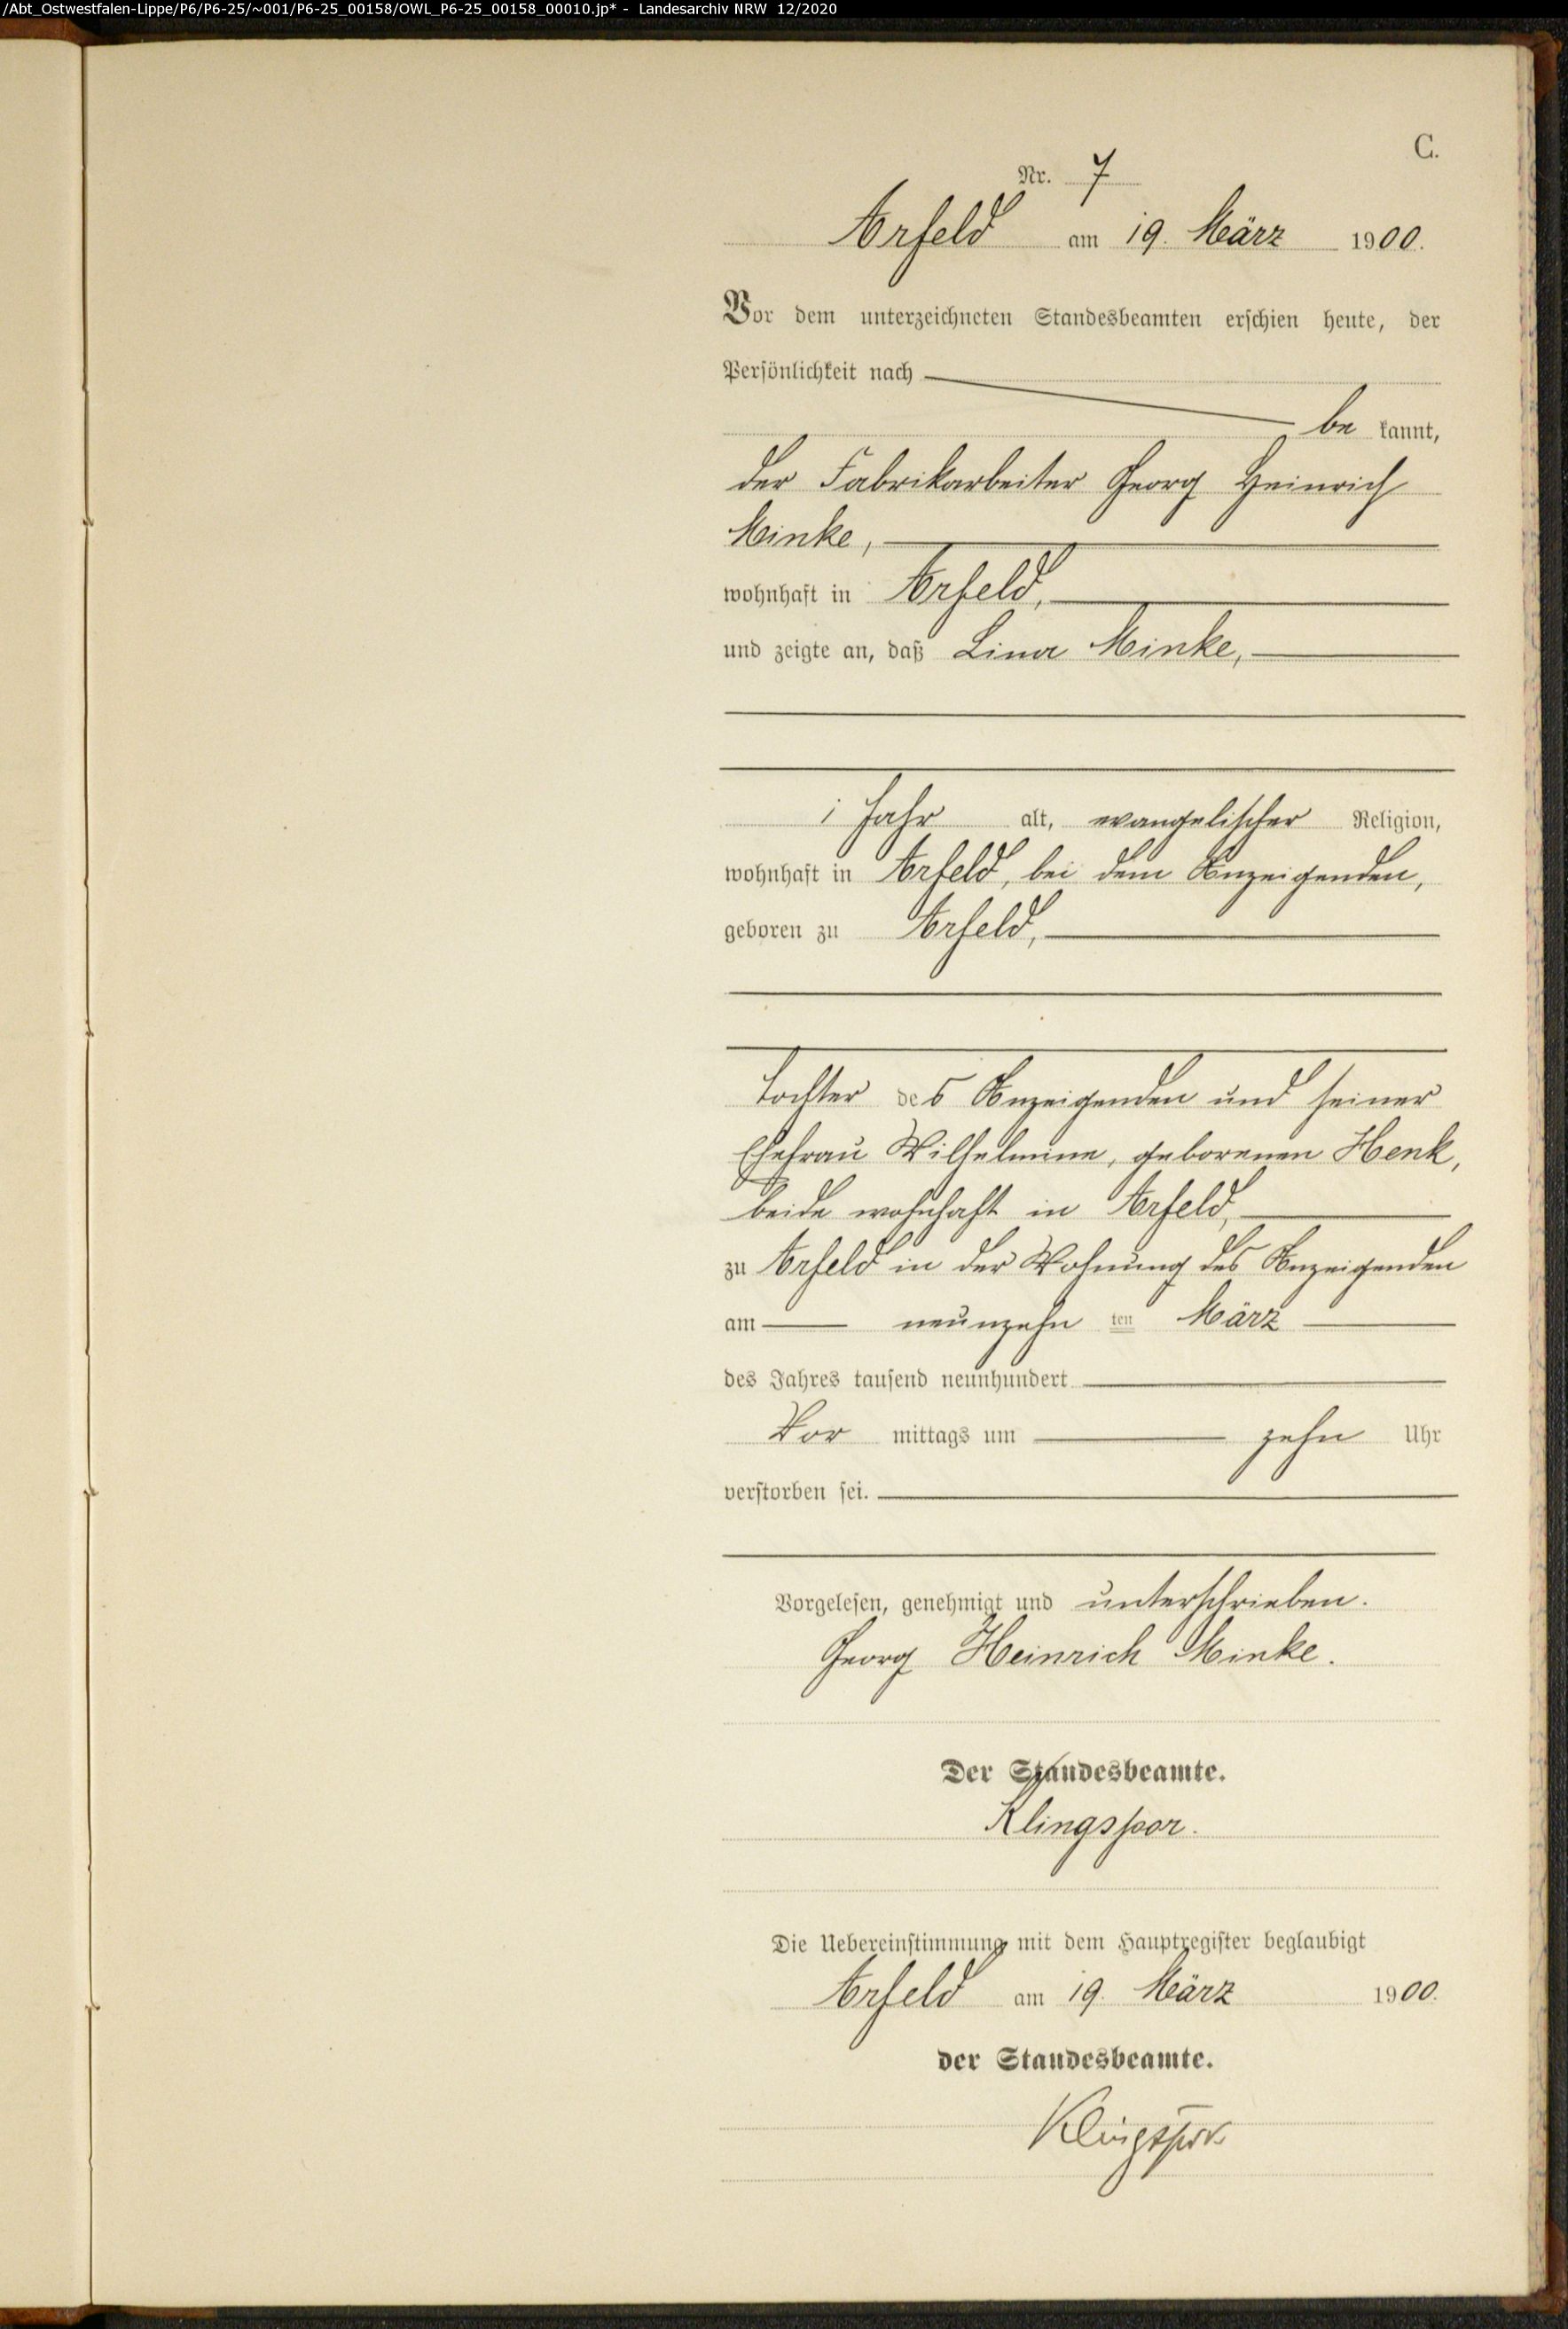 /Abt_Ostwestfalen-Lippe/P6/P6-25/~001/P6-25_00158/OWL_P6-25_00158_00010.jp* - Landesarchiv NRW 12/2020
C.
Nr. 7
Arfeld am 19. März 1900.
Vor dem unterzeichneten Standesbeamten erschien heute, der
Persönlichkeit nach
be kannt,
der Fabrikarbeiter Georg Heinrich
Minke,
wohnhaft in Arfeld,
und zeigte an, daß Lina Minke,
1 Jahr alt, evangelischer Religion,
wohnhaft in Arfeld, bei dem Anzeigenden,
geboren zu Arfeld,
Tochter des Anzeigenden und seiner
Ehefrau Wilhelmine, geborenen Henk,
beide wohnhaft in Arfeld,
zu Arfeld in der Wohnung des Anzeigenden
am neunzehn ten März
des Jahres tausend neunhundert
Vor mittags um zehn Uhr
verstorben sei.
Vorgelesen, genehmigt und unterschrieben.
Georg Heinrich Minke.
Der Standesbeamte.
Klingspor.
Die Uebereinstimmung mit dem Hauptregister beglaubigt
Arfeld am 19. März 1900.
der Standesbeamte.
Klingspor.